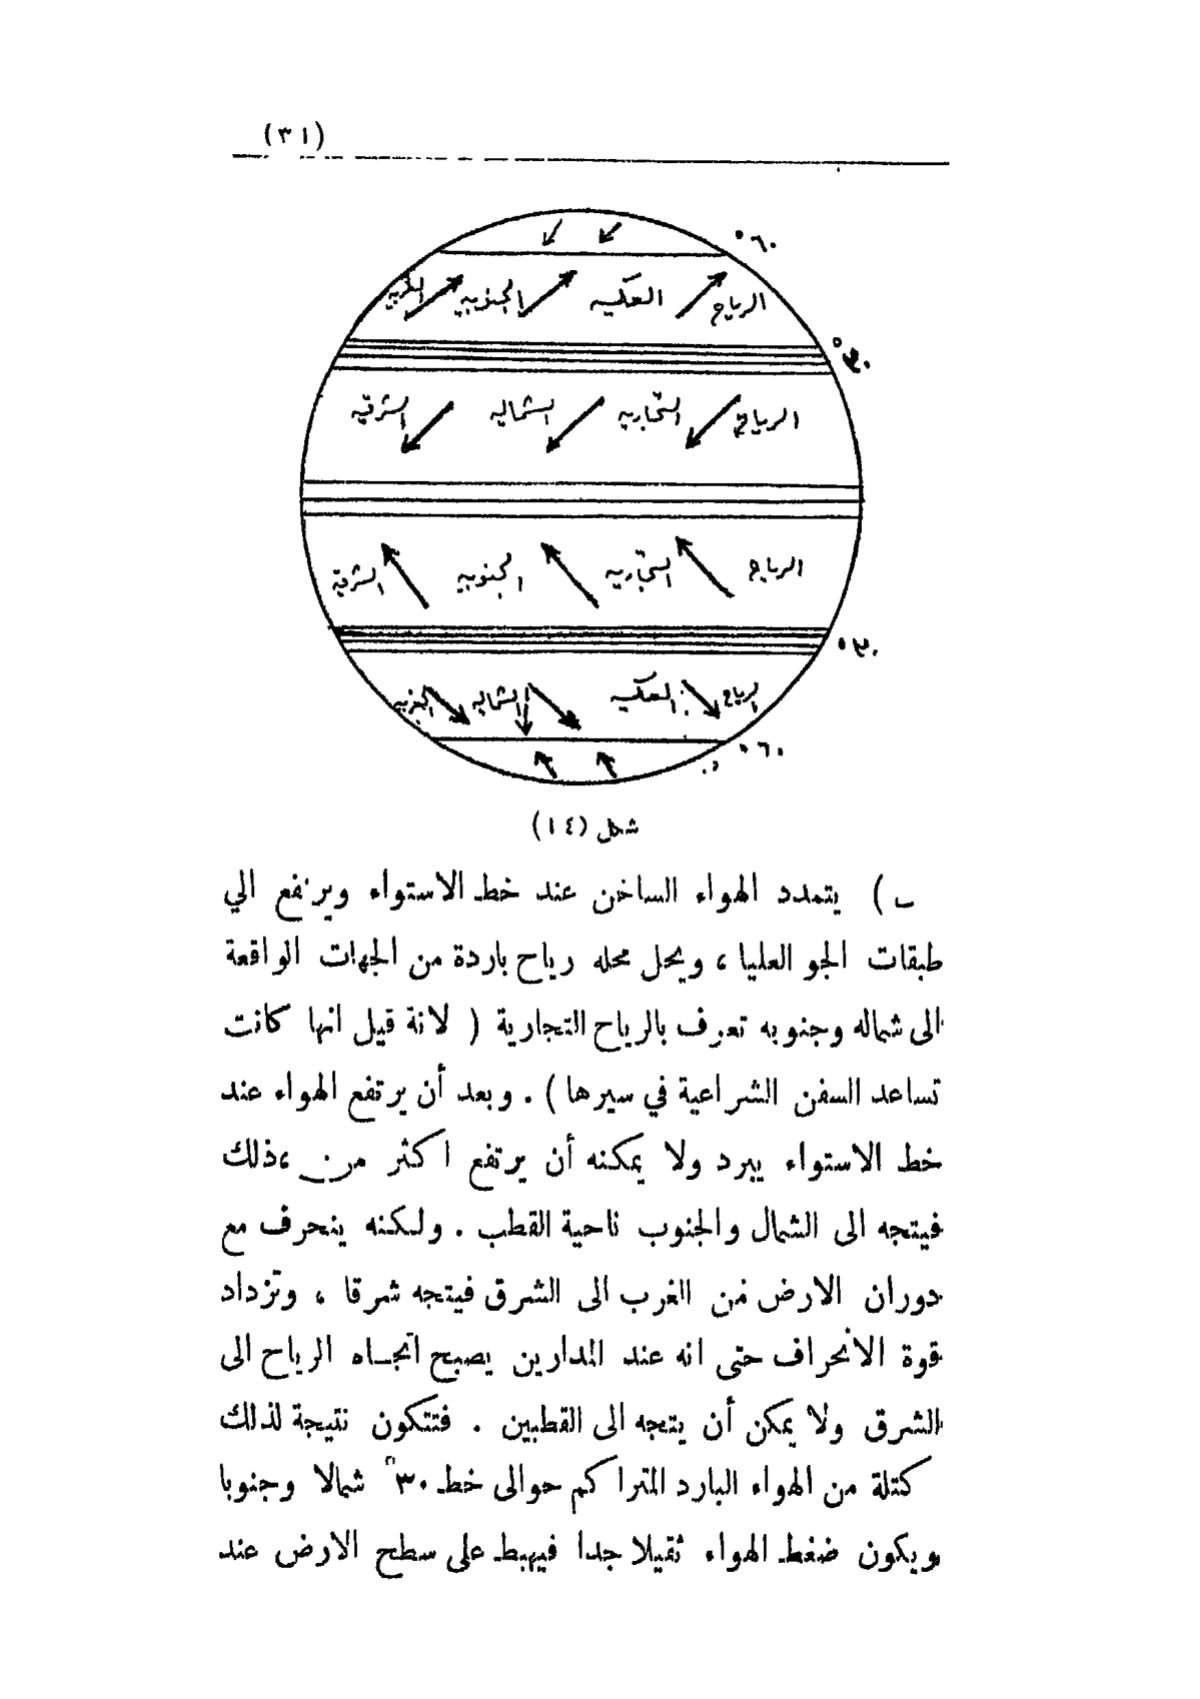 (٣١)
٦٠°
الرياح العكسيه الجنوبيه الغربيه
٣٠°
الرياح التجاريه الشماليه الشرقيه
الرياح التجاريه الجنوبيه الشرقية
٣٠°
الرياح العكسيه الشماليه الغربيه
٦٠°
شكل (١٤)
ب) يتمدد الهواء الساخن عند خط الاستواء ويرتفع الي
طبقات الجو العليا ، ويحل محله رياح باردة من الجهات الواقعة
الى شماله وجنوبه تعرف بالرياح التجارية ( لانة قيل انها كانت
تساعد السفن الشراعية في سيرها ) . وبعد أن يرتفع الهواء عند
خط الاستواء يبرد ولا يمكنه أن يرتفع اكثر من ذلك
فيتجه الى الشمال والجنوب ناحية القطب . ولكنه ينحرف مع
دوران الارض من الغرب الى الشرق فيتجه شرقا ، وتزداد
قوة الانحراف حتى انه عند المدارين يصبح اتجاه الرياح الى
الشرق ولا يمكن أن يتجه الى القطبين . فتتكون نتيجة لذلك
كتلة من الهواء البارد المتراكم حوالى خط ٣٠° شمالا وجنوبا
ويكون ضغط الهواء ثقيلا جدا فيهبط على سطح الارض عند